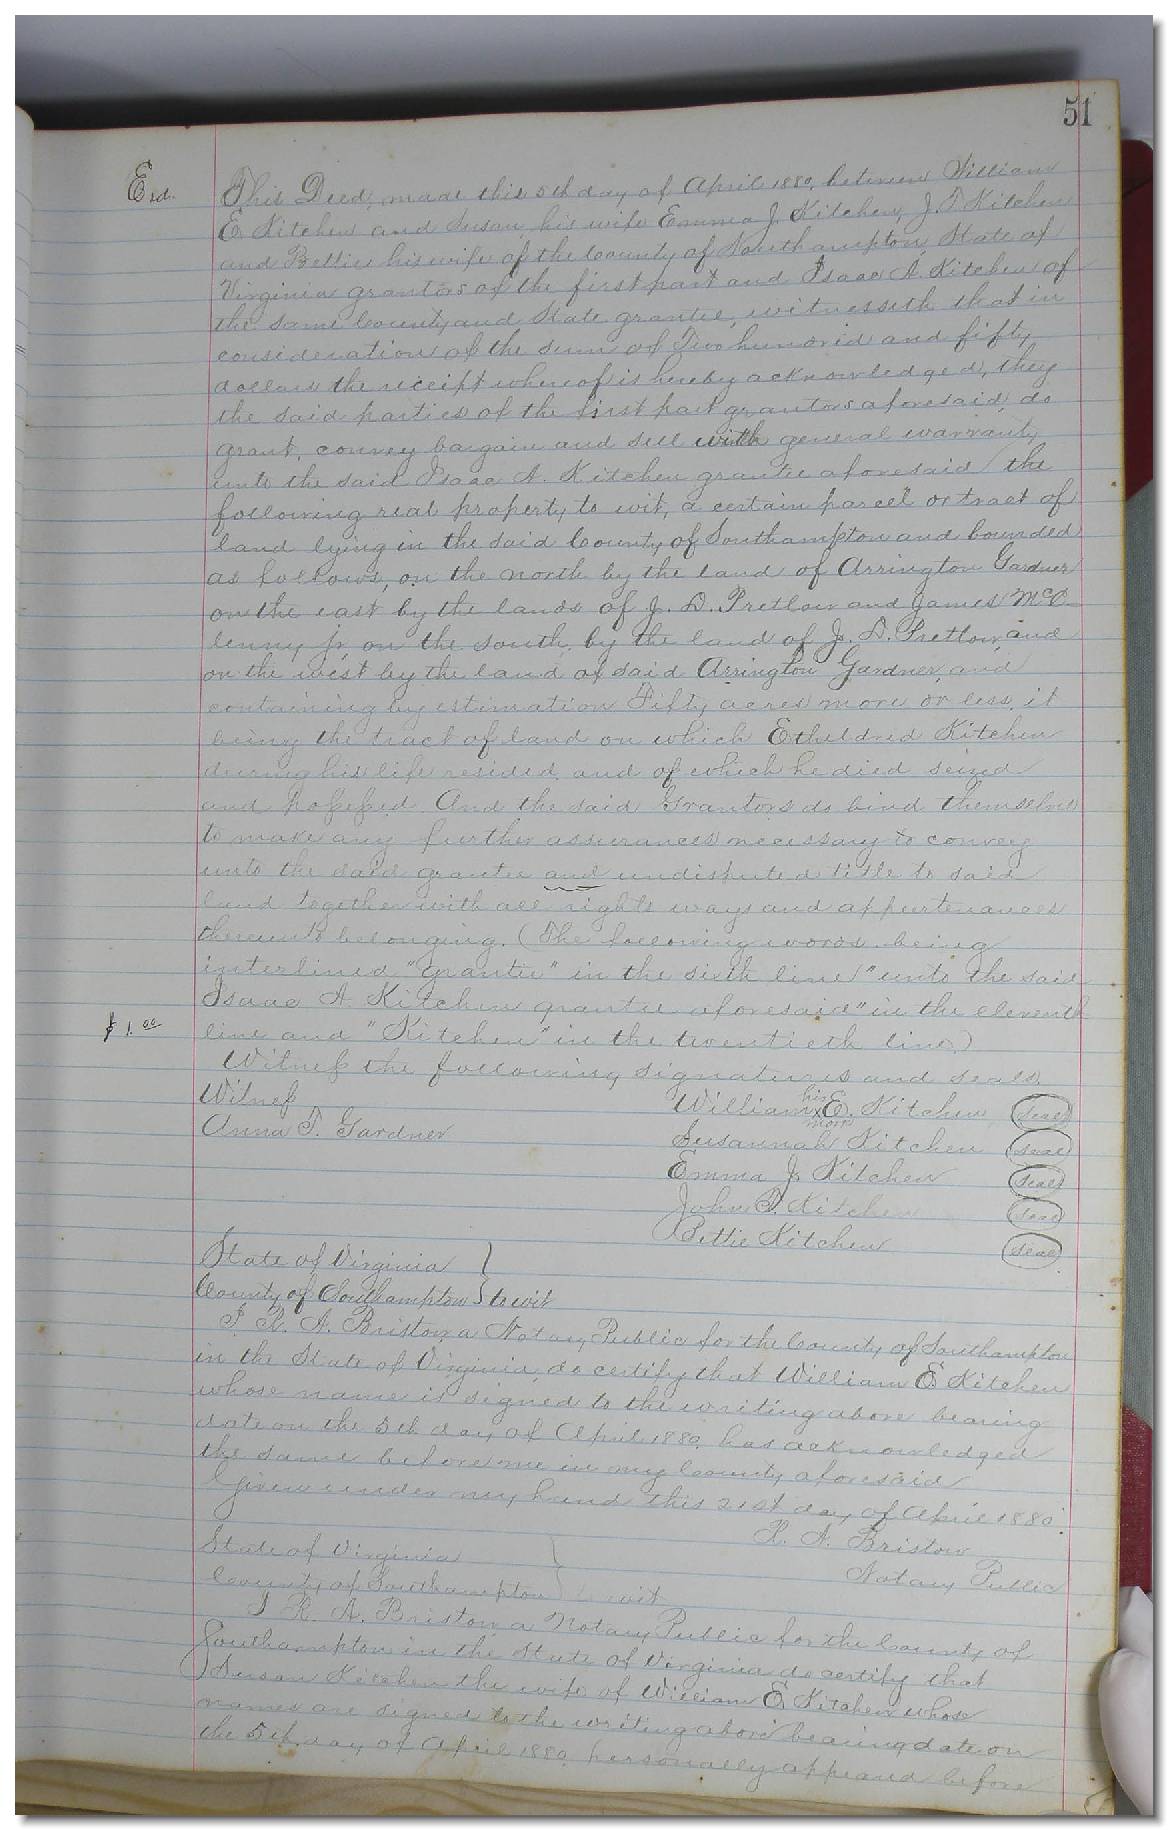 51
Exd.
This Deed, made this 5th day of April 1880, between William
E. Kitchen and Susan, his wife Emma J. Kitchen, J. T. Kitchen
and Bettie his wife of the County of Southampton, State of
Virginia grantors of the first part and Isaac A. Kitchen of
the same County and State grantee, witnesseth that in
consideration of the sum of Two hundrid and fifty
dollars the receipt whereof is hereby acknowledged, they
the said parties of the first part grantors aforesaid, do
grant, convey bargain and sell with general warranty
unto the said Isaac A. Kitchen grantee aforesaid / the
following real property to wit, a certain parcel or tract of
land lying in the said County of Southampton and bounded
as follows, on the north by the land of Arrington Gardner
on the east by the lands of J. D. Pretlow and James McC-
lenny jr, on the south, by the land of J. D. Pretlow, and
on the west by the land of said Arrington Gardner, and
containing by estimation Fifty acres more or less, it
being the tract of land on which Etheldred Kitchen
during his life resided, and of which he died seized
and possessed. And the said Grantors do bind themselves
to make any further assurances necessary to convey
unto the said grantee and undisputed title to said
land together with all rights ways and appurtenances
thereunto belonging. (The following words being
interlined "grantee" in the sixth line / "unto the said
Isaac A Kitchen grantee aforesaid" in the eleventh
$1.00 line and "Kitchen" in the twentieth line.)
Witness the following signatures and seals.
Witness
Anna T. Gardner
William his x mark E. Kitchen seal
Susannah Kitchen seal
Emma J. Kitchen seal
John T. Kitchen seal
Bettie Kitchen seal
State of Virginia
County of Southampton } to wit
I R. A. Bristow a Notary Public for the County of Southampton
in the State of Virginia, do certify that William E. Kitchen
whose name is signed to the writing above bearing
date on the 5th day of April 1880, has acknowledged
the same before me in my County aforesaid
Given under my hand this 21st day of April 1880.
R. A. Bristow
Notary Public
State of Virginia
County of Southampton } to wit
I R. A. Bristow a Notary Public for the County of
Southampton in the State of Virginia do certify that
Susan Kitchen the wife of William E. Kitchen whose
names are signed to the writing above bearing date on
the 5th day of April 1880, personally appeared before